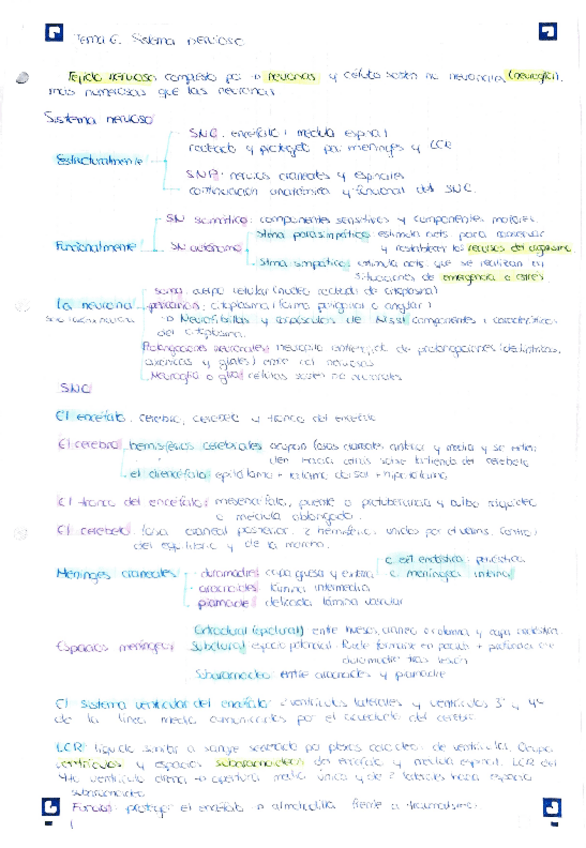 Tema 6. Sistema nervioso
Tejido nervioso compuesto por → neuronas y células sosten no neuronales (neuroglía).
más numerosas que las neuronas
Sistema nervioso
Estructuralmente
SNC. encéfalo i medula espinal
rodeado y protegido por meninges y LCR
SNP: nervios craneales y espinales
continuación anatómica y funcional del SNC.
Funcionalmente
SN somático: componentes sensitivos y componentes motores.
SN autónomo
stma parasimpático: estimula acts para conservar
y restablecer los recursos del organismo
stma simpático: estimula acts. que se realizan en
situaciones de emergencia o estrés
La neurona
soma: cuerpo celular (núcleo rodeado de citoplasma)
pericarion: citoplasma (forma poligonal o angular)
→ Neurofibrillas y corpúsculos de Nissl componentes
del citoplasma.
Prolongaciones neuronales: de prolongaciones (dendríticas,
axónicas y gliales) entre cel nerviosas
Neuroglia o glia: células sosten no neuronales
SNC
El encéfalo. cerebro, cerebelo y tronco del encéfalo
El cerebro
hemisferios cerebrales ocupan fosas craneales anterior y media y se extien
den hacia atrás sobre tentorio del cerebelo
el diencéfalo: epitálamo + tálamo dorsal + hipotálamo
El tronco del encéfalo: mesencéfalo, puente o protuberancia y bulbo raquídeo
o médula oblongada.
El cerebelo fosa craneal posterior. 2 hemisferios unidos por el vermis. Control
del equilibrio y de la marcha.
Meninges craneales
duramadre: capa gruesa y externa
c. ext endóstica: perióstica
c. meníngea interna
aracnoides: lámina intermedia
piamadre: delicada lámina vascular
Espacios meníngeos
Extradural (epidural) entre huesos cráneo o columna y capa endóstica.
Subdural espacio potencial. Puede formarse en
duramadre tras lesión
Subaracnoideo: entre aracnoides y piamadre
El sistema ventricular del encéfalo: 2 ventrículos laterales y ventrículos 3º y 4º
de la línea media comunicados por el acueducto del cerebro
LCR: líquido similar a sangre secretado por plexos coroideos de ventrículos. Ocupa
ventrículos y espacios subaracnoideos del encéfalo y médula espinal. LCR del
4to ventrículo drena → apertura media única y de 2 laterales hacia espacio
subaracnoideo
Función: proteger el encéfalo → almohadilla frente a traumatismo.